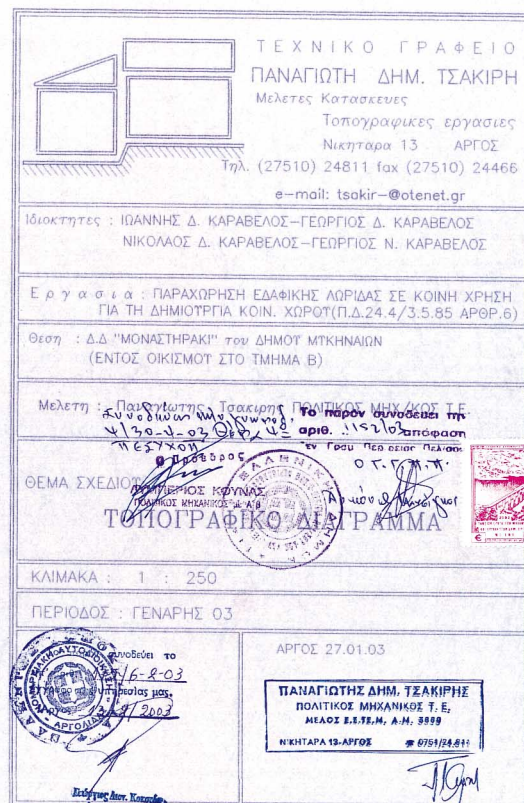 ΤΕΧΝΙΚΟ ΓΡΑΦΕΙΟ
ΠΑΝΑΓΙΩΤΗ ΔΗΜ. ΤΣΑΚΙΡΗ
Μελετες Κατασκευες
Τοπογραφικες εργασιες
Νικηταρα 13 ΑΡΓΟΣ
Τηλ. (27510) 24811 fax (27510) 24466
e-mail: tsakir-@otenet.gr
Ιδιοκτητες : ΙΩΑΝΝΗΣ Δ. ΚΑΡΑΒΕΛΟΣ-ΓΕΩΡΓΙΟΣ Δ. ΚΑΡΑΒΕΛΟΣ
ΝΙΚΟΛΑΟΣ Δ. ΚΑΡΑΒΕΛΟΣ-ΓΕΩΡΓΙΟΣ Ν. ΚΑΡΑΒΕΛΟΣ
Εργασια : ΠΑΡΑΧΩΡΗΣΗ ΕΔΑΦΙΚΗΣ ΛΩΡΙΔΑΣ ΣΕ ΚΟΙΝΗ ΧΡΗΣΗ
ΓΙΑ ΤΗ ΔΗΜΙΟΥΡΓΙΑ ΚΟΙΝ. ΧΩΡΟΥ(Π.Δ.24.4/3.5.85 ΑΡΘΡ.6)
Θεση : Δ.Δ "ΜΟΝΑΣΤΗΡΑΚΙ" του ΔΗΜΟΥ ΜΥΚΗΝΑΙΩΝ
(ΕΝΤΟΣ ΟΙΚΙΣΜΟΥ ΣΤΟ ΤΜΗΜΑ Β)
Μελετη : Παναγιωτης Τσακιρης ΠΟΛΙΤΙΚΟΣ ΜΗΧ/ΚΟΣ Τ.Ε
Το παρόν συνοδεύει την
αριθ. 1152/03 απόφαση
4/30-4-03
Ο Πρόεδρος
Ο Γ.Γ.Π.Π.
ΚΟΥΝΑΣ
ΠΟΛΙΤΙΚΟΣ ΜΗΧΑΝΙΚΟΣ
ΕΛΛΗΝΙΚΗ
ΘΕΜΑ ΣΧΕΔΙΟΥ
ΤΟΠΟΓΡΑΦΙΚΟ ΔΙΑΓΡΑΜΜΑ
ΚΛΙΜΑΚΑ : 1 : 250
ΠΕΡΙΟΔΟΣ : ΓΕΝΑΡΗΣ 03
συνοδεύει το
6-2-03
υπηρεσίας μας.
2003
ΑΡΓΟΣ 27.01.03
ΠΑΝΑΓΙΩΤΗΣ ΔΗΜ. ΤΣΑΚΙΡΗΣ
ΠΟΛΙΤΙΚΟΣ ΜΗΧΑΝΙΚΟΣ Τ. Ε.
ΜΕΛΟΣ Ε.Ε.ΤΕ.Μ. Α.Μ. 9999
ΝΙΚΗΤΑΡΑ 13-ΑΡΓΟΣ ☎ 0751/24.811